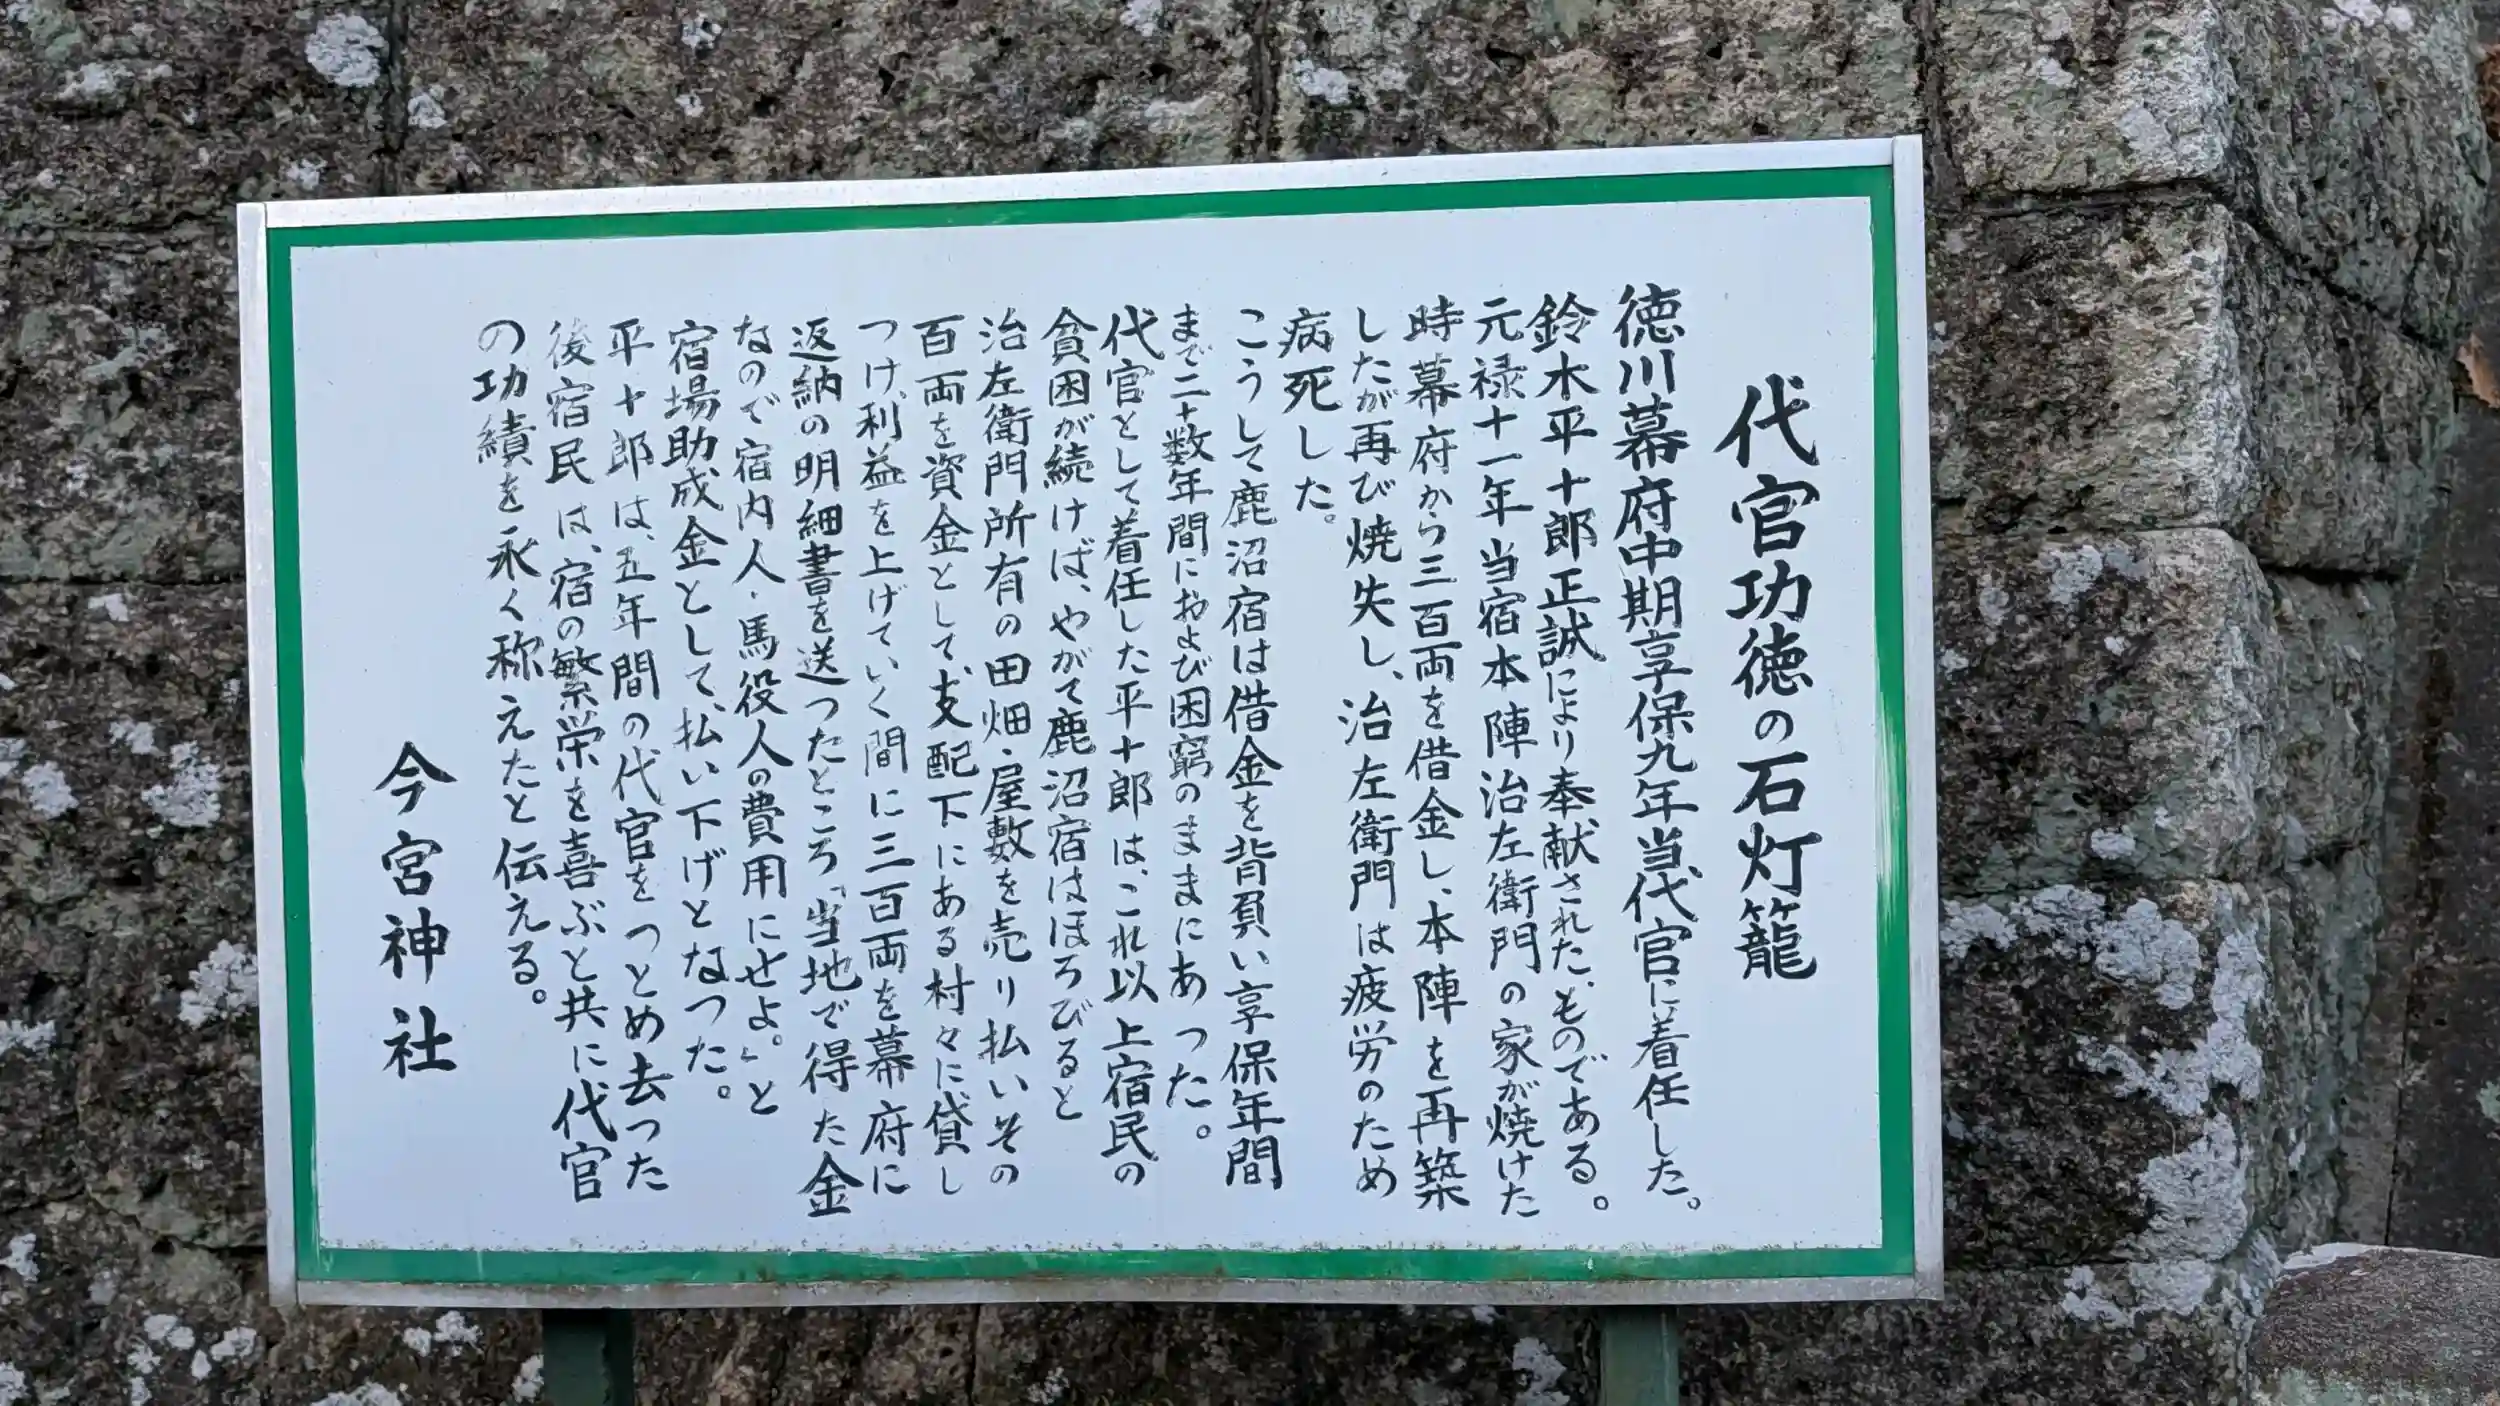 代官功徳の石灯籠
徳川幕府中期享保九年当代官に着任した。
鈴木平十郎正誠により奉献された、ものである。
元禄十一年当宿本陣治左衛門の家が焼けた
時幕府から三百両を借金し、本陣を再築
したが再び焼失し、治左衛門は疲労のため
病死した。
こうして鹿沼宿は借金を背負い享保年間
まで二十数年間におよび困窮のままにあった。
代官として着任した平十郎は、これ以上宿民の
貧困が続けば、やがて鹿沼宿はほろびると
治左衛門所有の田畑・屋敷を売り払いその
百両を資金として、支配下にある村々に貸し
つけ、利益を上げていく間に三百両を幕府に
返納の明細書を送ったところ「当地で得た金
なので宿内人・馬役人の費用にせよ。」と
宿場助成金として、払い下げとなった。
平十郎は、五年間の代官をつとめ去った
後宿民は、宿の繁栄を喜ぶと共に代官
の功績を永く称えたと伝える。
今宮神社